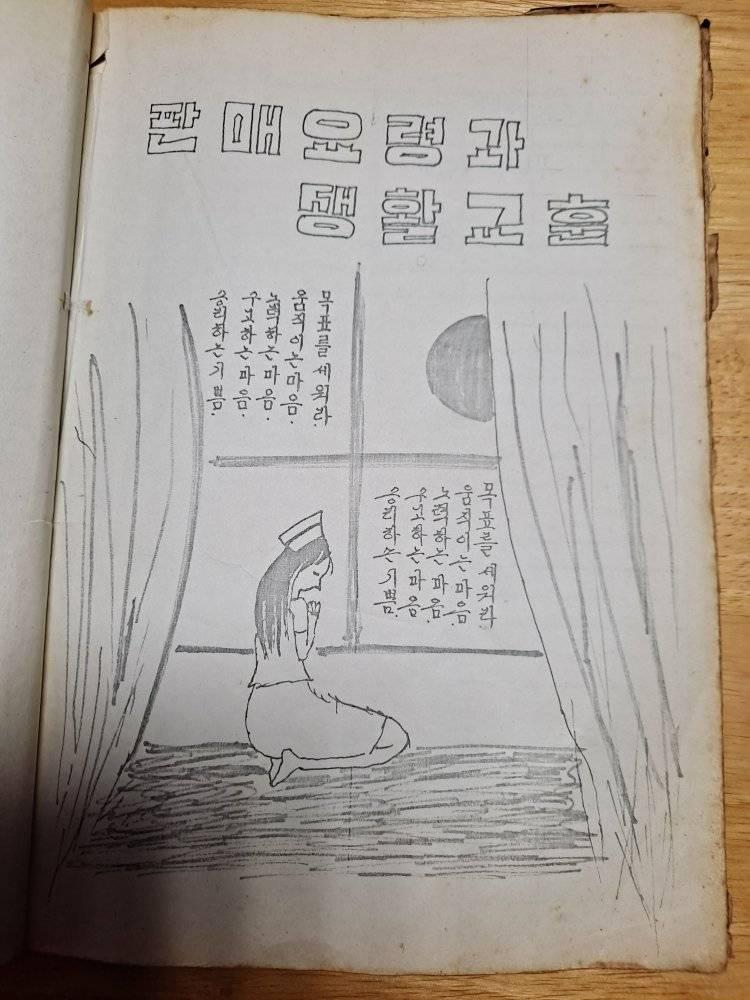 판매요령과
생활교훈
목표를 세워라.
움직이는마음.
노력하는마음.
수고하는마음.
승리하는기쁨.
목표를 세워라.
움직이는 마음.
노력하는 마음.
수고하는 마음.
승리하는 기쁨.